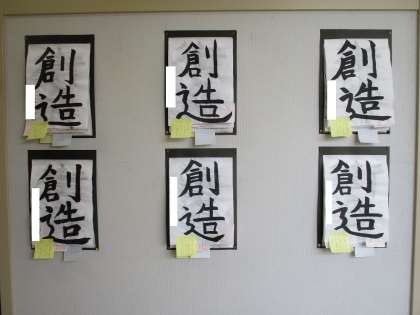 創造
創造
創造
創造
創造
創造